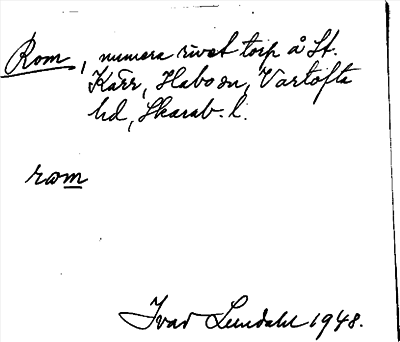 Rom, numera rivet torp å St.
Kärr, Habo sn, Vartofta
hd, Skarab. l.
rom
Ivar Lundahl 1948.